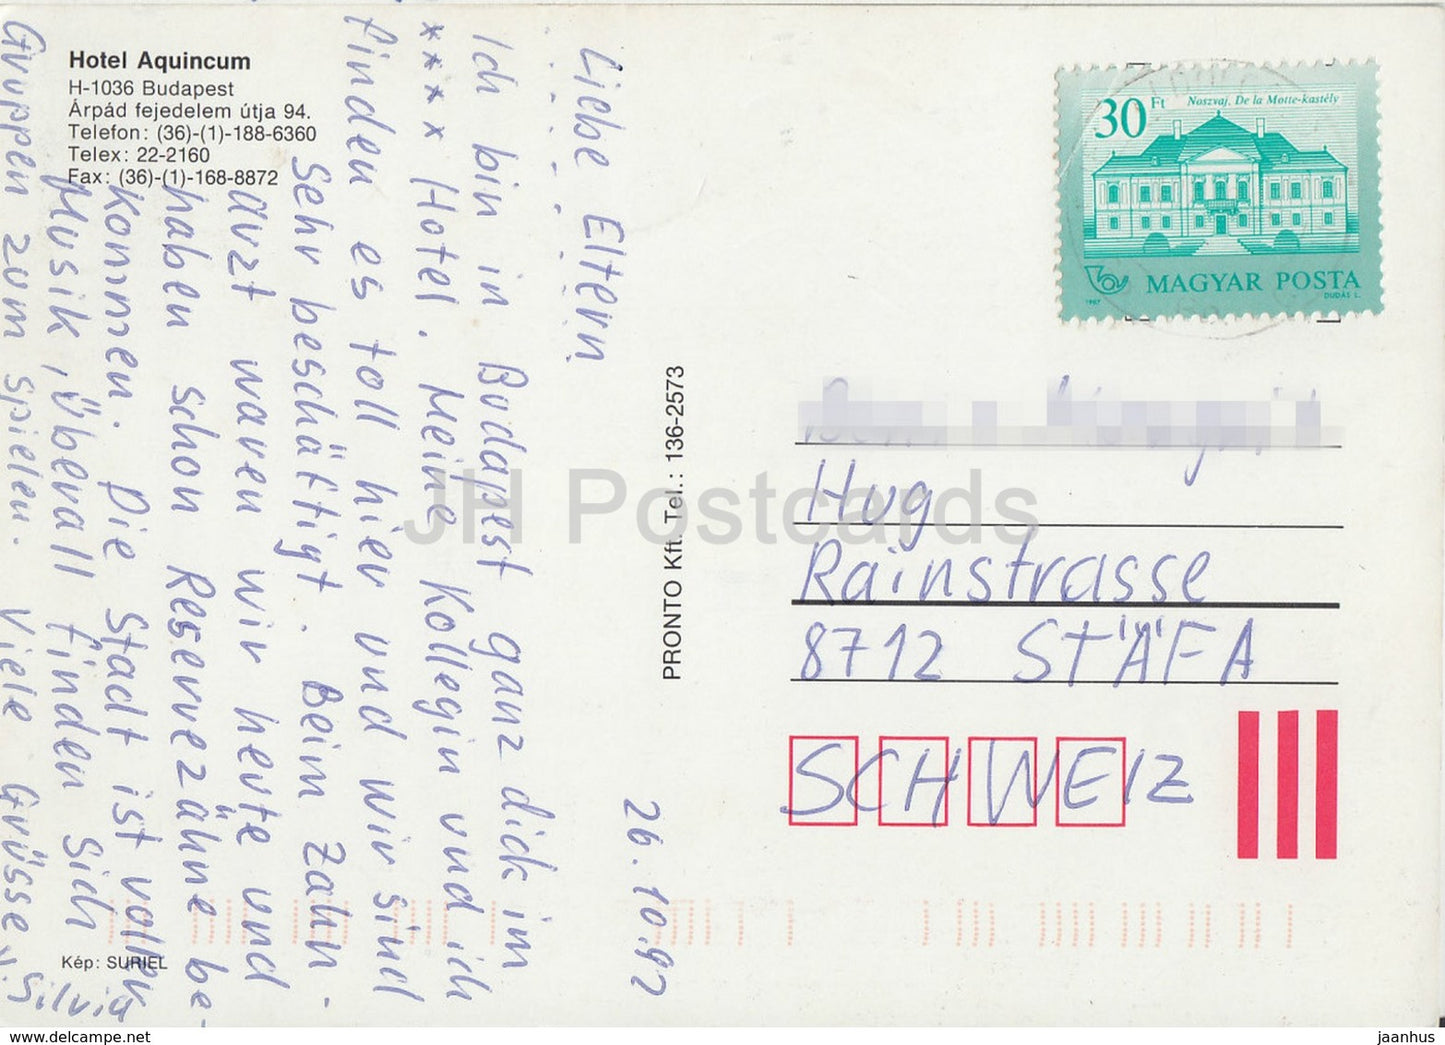 Hotel Aquincum
H-1036 Budapest
Árpád fejedelem útja 94.
Telefon: (36)-(1)-188-6360
Telex: 22-2160
Fax: (36)-(1)-168-8872
26.10.92
Liebe Eltern
Ich bin in Budapest ganz dick im
**** Hotel. Meine Kollegin und ich
finden es toll hier und wir sind
sehr beschäftigt. Beim Zahn-
arzt waren wir heute und
haben schon Reservezähne be-
kommen. Die Stadt ist voller
Musik, überall finden sich
Gruppen zum spielen. Viele Grüsse
Silvia
Kép: SURIEL
PRONTO Kft. Tel.: 136-2573
30 Ft
Noszvaj, De la Motte-kastély
MAGYAR POSTA
1987
DUDÁS L.
Hug
Rainstrasse
8712 STÄFA
SCHWEIZ
JH Postcards
www.delcampe.net
jaanhus